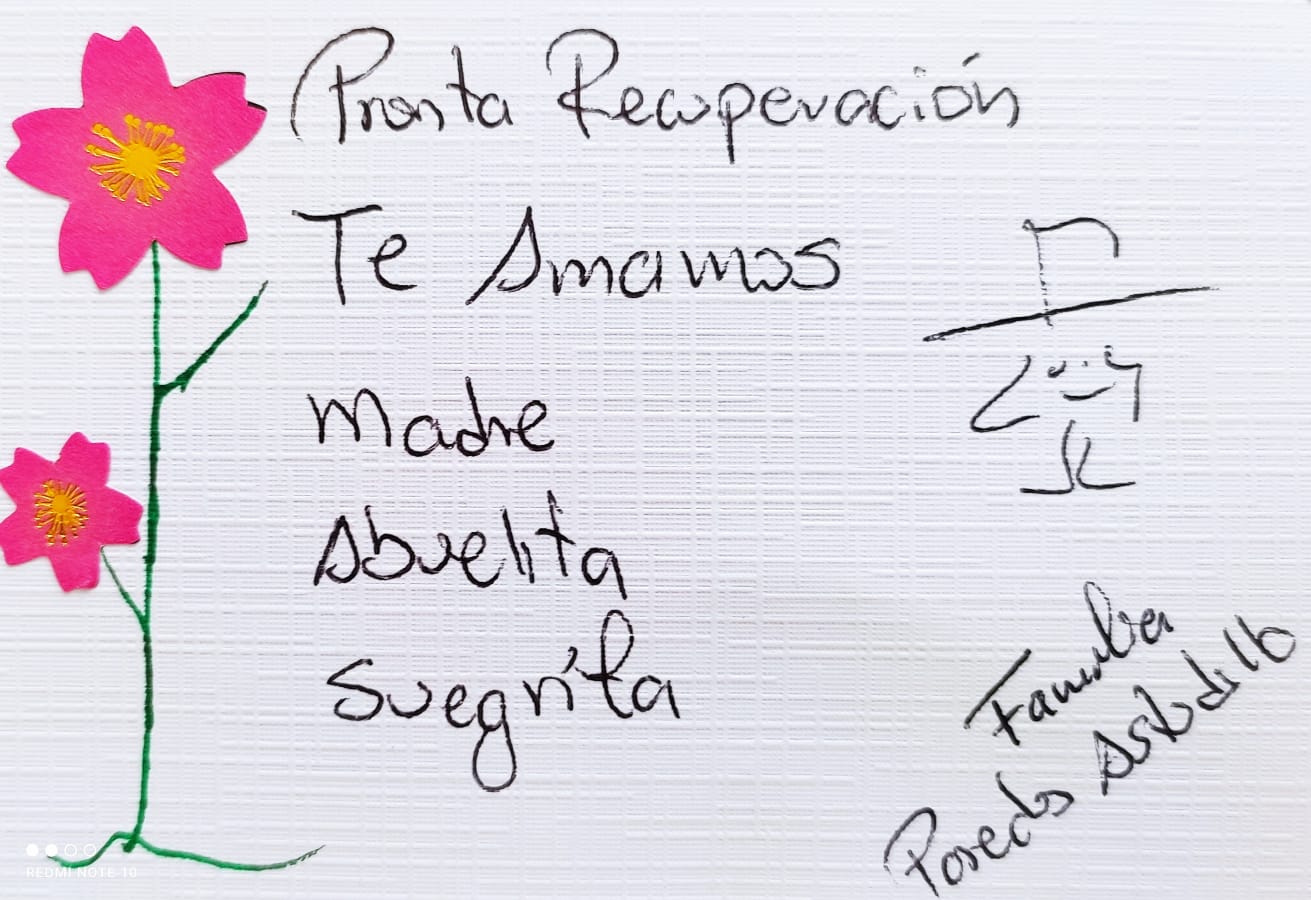 Pronta Recuperación
Te Amamos
Madre
Abuelita
Suegrita
Familia
Paredes Astudillo
REDMI NOTE 10